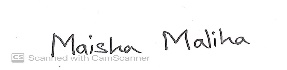 Maisha Maliha
CS Scanned with CamScanner